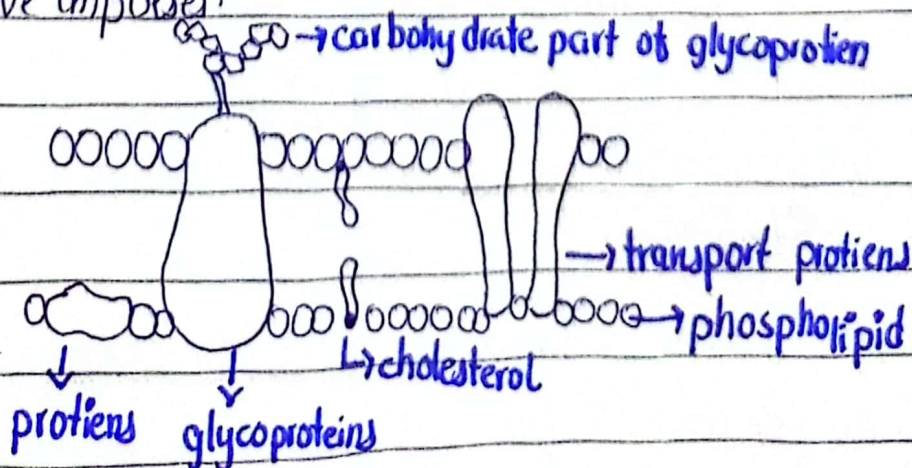 →carbohydrate part of glycoprotien
→transport protiens
→phospholipid
↳cholesterol
protiens
glycoproteins